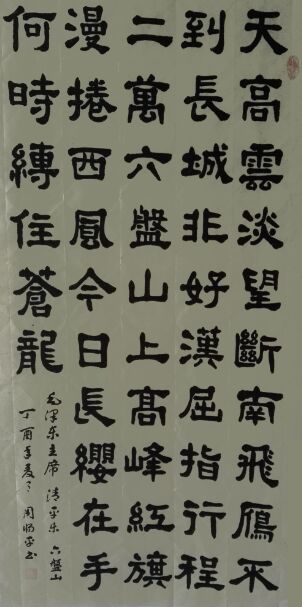 天高雲淡望斷南飛鴈不
到長城非好漢屈指行程
二萬六盤山上高峰紅旗
漫捲西風今日長纓在手
何時縛住蒼龍
毛澤东主席 清平乐 六盤山
丁酉年夏 周